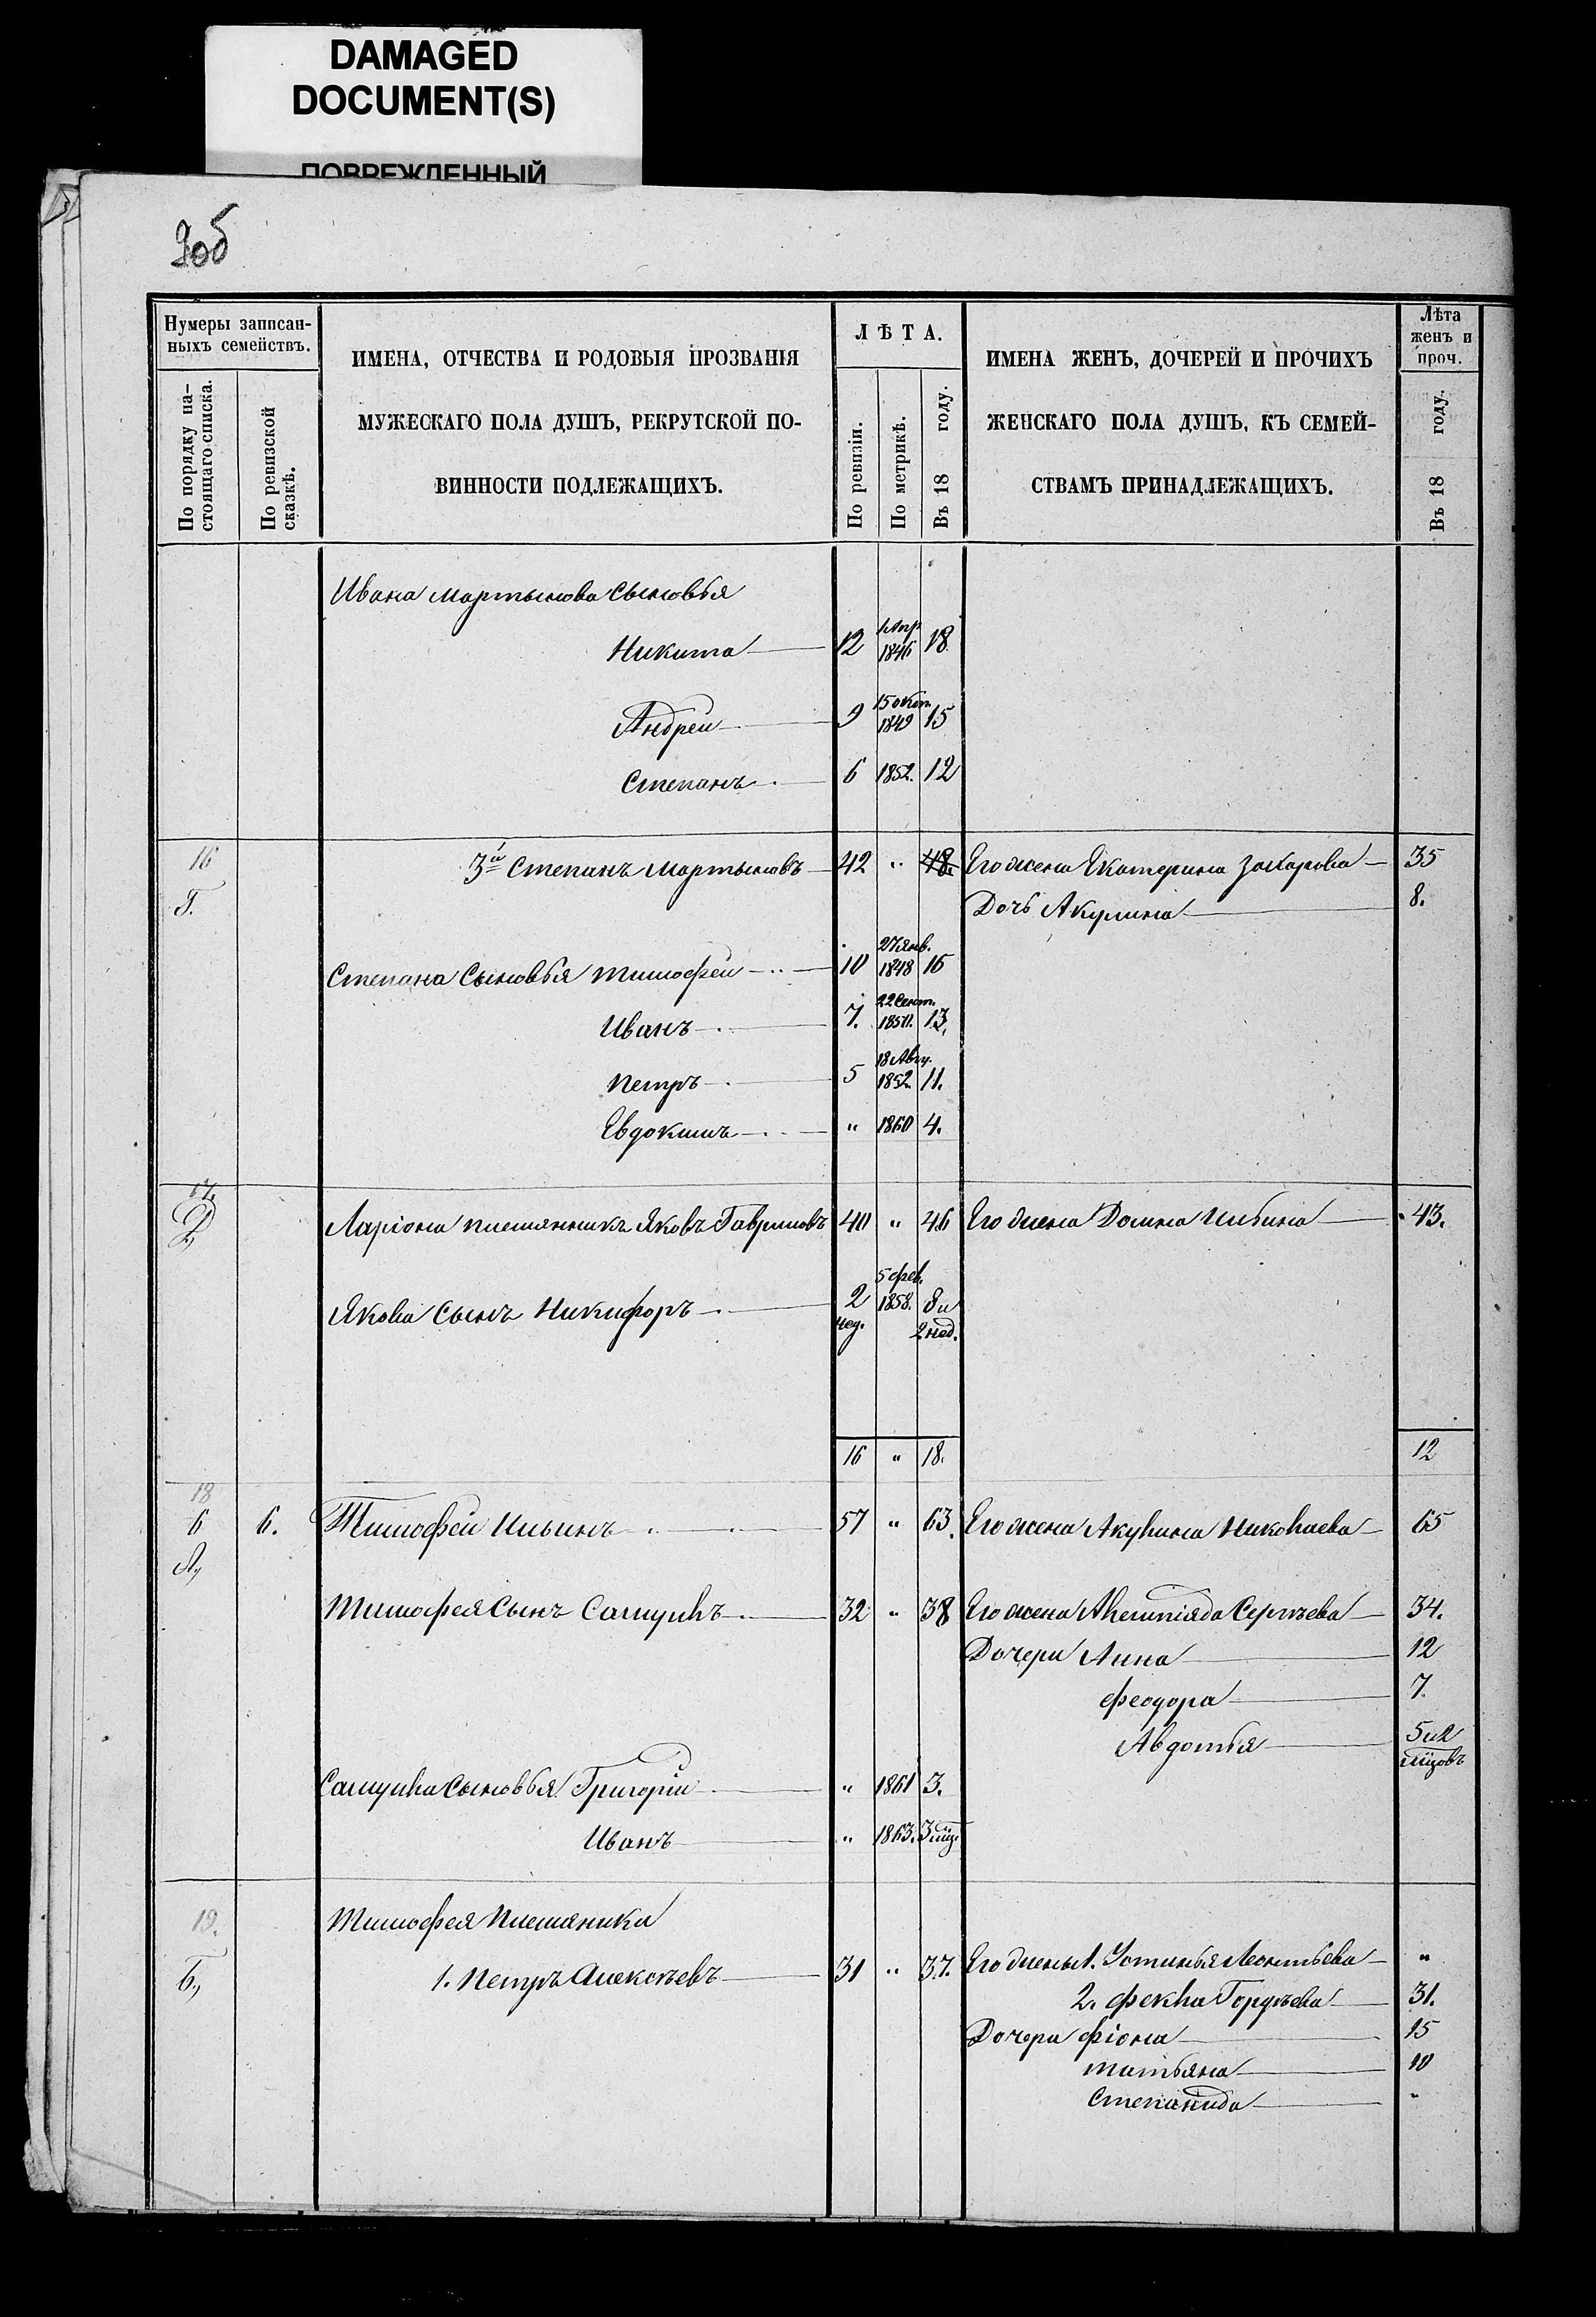 DAMAGED
DOCUMENT(S)
ПОВРЕЖДЕННЫЙ
Нумеры записан-
ныхъ семействъ.
По порядку на-
стоящаго списка.
По ревизской
сказкѣ.
ИМЕНА, ОТЧЕСТВА И РОДОВЫЯ ПРОЗВАНІЯ
МУЖЕСКАГО ПОЛА ДУШЪ, РЕКРУТСКОЙ ПО-
ВИННОСТИ ПОДЛЕЖАЩИХЪ.
ЛѢТА.
По ревизіи.
По метрикѣ.
Въ 18 году.
ИМЕНА ЖЕНЪ, ДОЧЕРЕЙ И ПРОЧИХЪ
ЖЕНСКАГО ПОЛА ДУШЪ, КЪ СЕМЕЙ-
СТВАМЪ ПРИНАДЛЕЖАЩИХЪ.
Лѣта
женъ и
проч.
Въ 18 году.
Ивана Мартынова Сыновья
Никита 12 1 Апр 1846 18
Андрей 9 15 Окт. 1849 15
Степанъ 6 1852. 12
16 Г. 3й Степанъ Мартыновъ 42 " 48 Его жена Екатерина Захарова 35
Дочь Акулина 8.
Степана Сыновья Тимофей 10 27 Янв. 1848 16
Иванъ 7. 22 Сент. 1850. 13.
Петръ 5 18 Авгу. 1852 11.
Евдокимъ " 1860 4.
17. Д, Ларіона племянникъ Яковъ Гавриловъ 40 " 46 Его жена Домна Ильина 43.
Якова Сынъ Никифоръ 2 нед. 5 фев. 1858. 8 и 2 нед.
16 " 18. 12
18 6 А, 6. Тимофей Ильинъ 57 " 63. Его жена Акулина Николаева 65
Тимофея Сынъ Самуилъ 32 " 38 Его жена Алемпіяда Сергѣева 34.
Дочери Анна 12
Феодора 7.
Авдотья 5 и 2 мѣцовъ
Самуила Сыновья Григорій " 1861 3.
Иванъ " 1863. 3 мѣц.
19. Б, Тимофея Племяники
1. Петръ Алексѣевъ 31 " 37. Его жены 1. Устинья Леонтьева "
2. Фекла Гордѣева 31.
Дочери Фіона 15
Татьяна 10
Степанида "